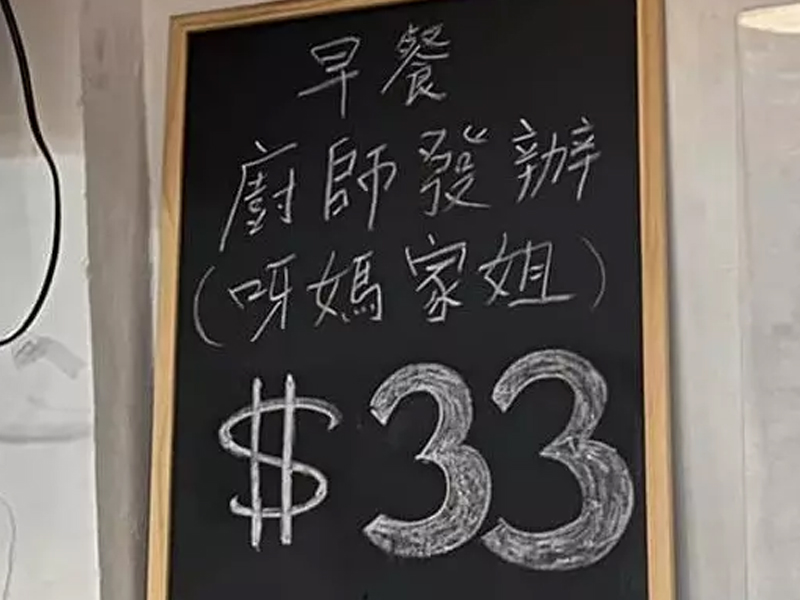 早餐
廚師發辦
(呀媽家姐)
$33